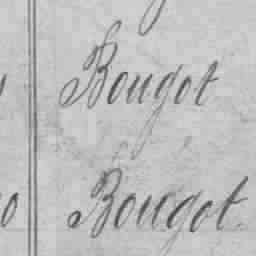 Bougot
Bougot